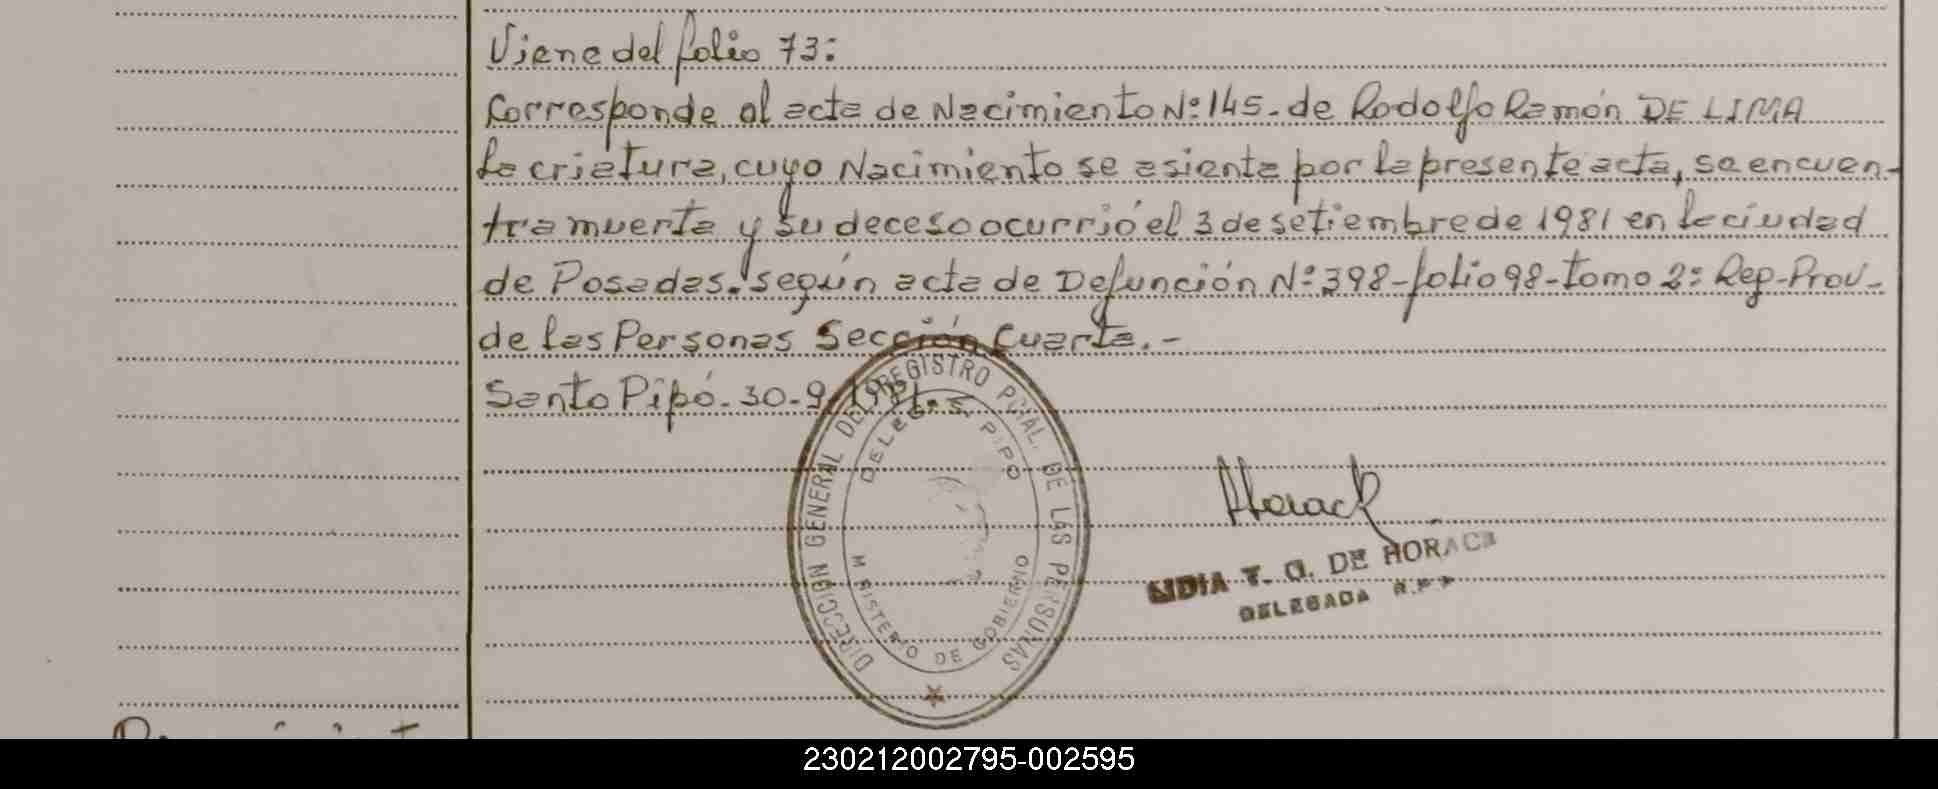 Viene del folio 73:
Corresponde al acta de Nacimiento Nº 145. de Rodolfo Ramón DE LIMA
La criatura, cuyo Nacimiento se asienta por la presente acta, se encuen-
tra muerta y su deceso ocurrió el 3 de setiembre de 1981 en la ciudad
de Posadas. según acta de Defunción Nº 398-folio 98-tomo 2º Rep-Prov-
de las Personas Sección Cuarta.-
Santo Pipó. 30-9-1981.
DIRECCION GENERAL DEL REGISTRO PCIAL. DE LAS PERSONAS
DELEG. S. PIPO
MINISTERIO DE GOBIERNO
Horack
LIDIA T. O. DE HORACK
DELEGADA R.P.P
230212002795-002595